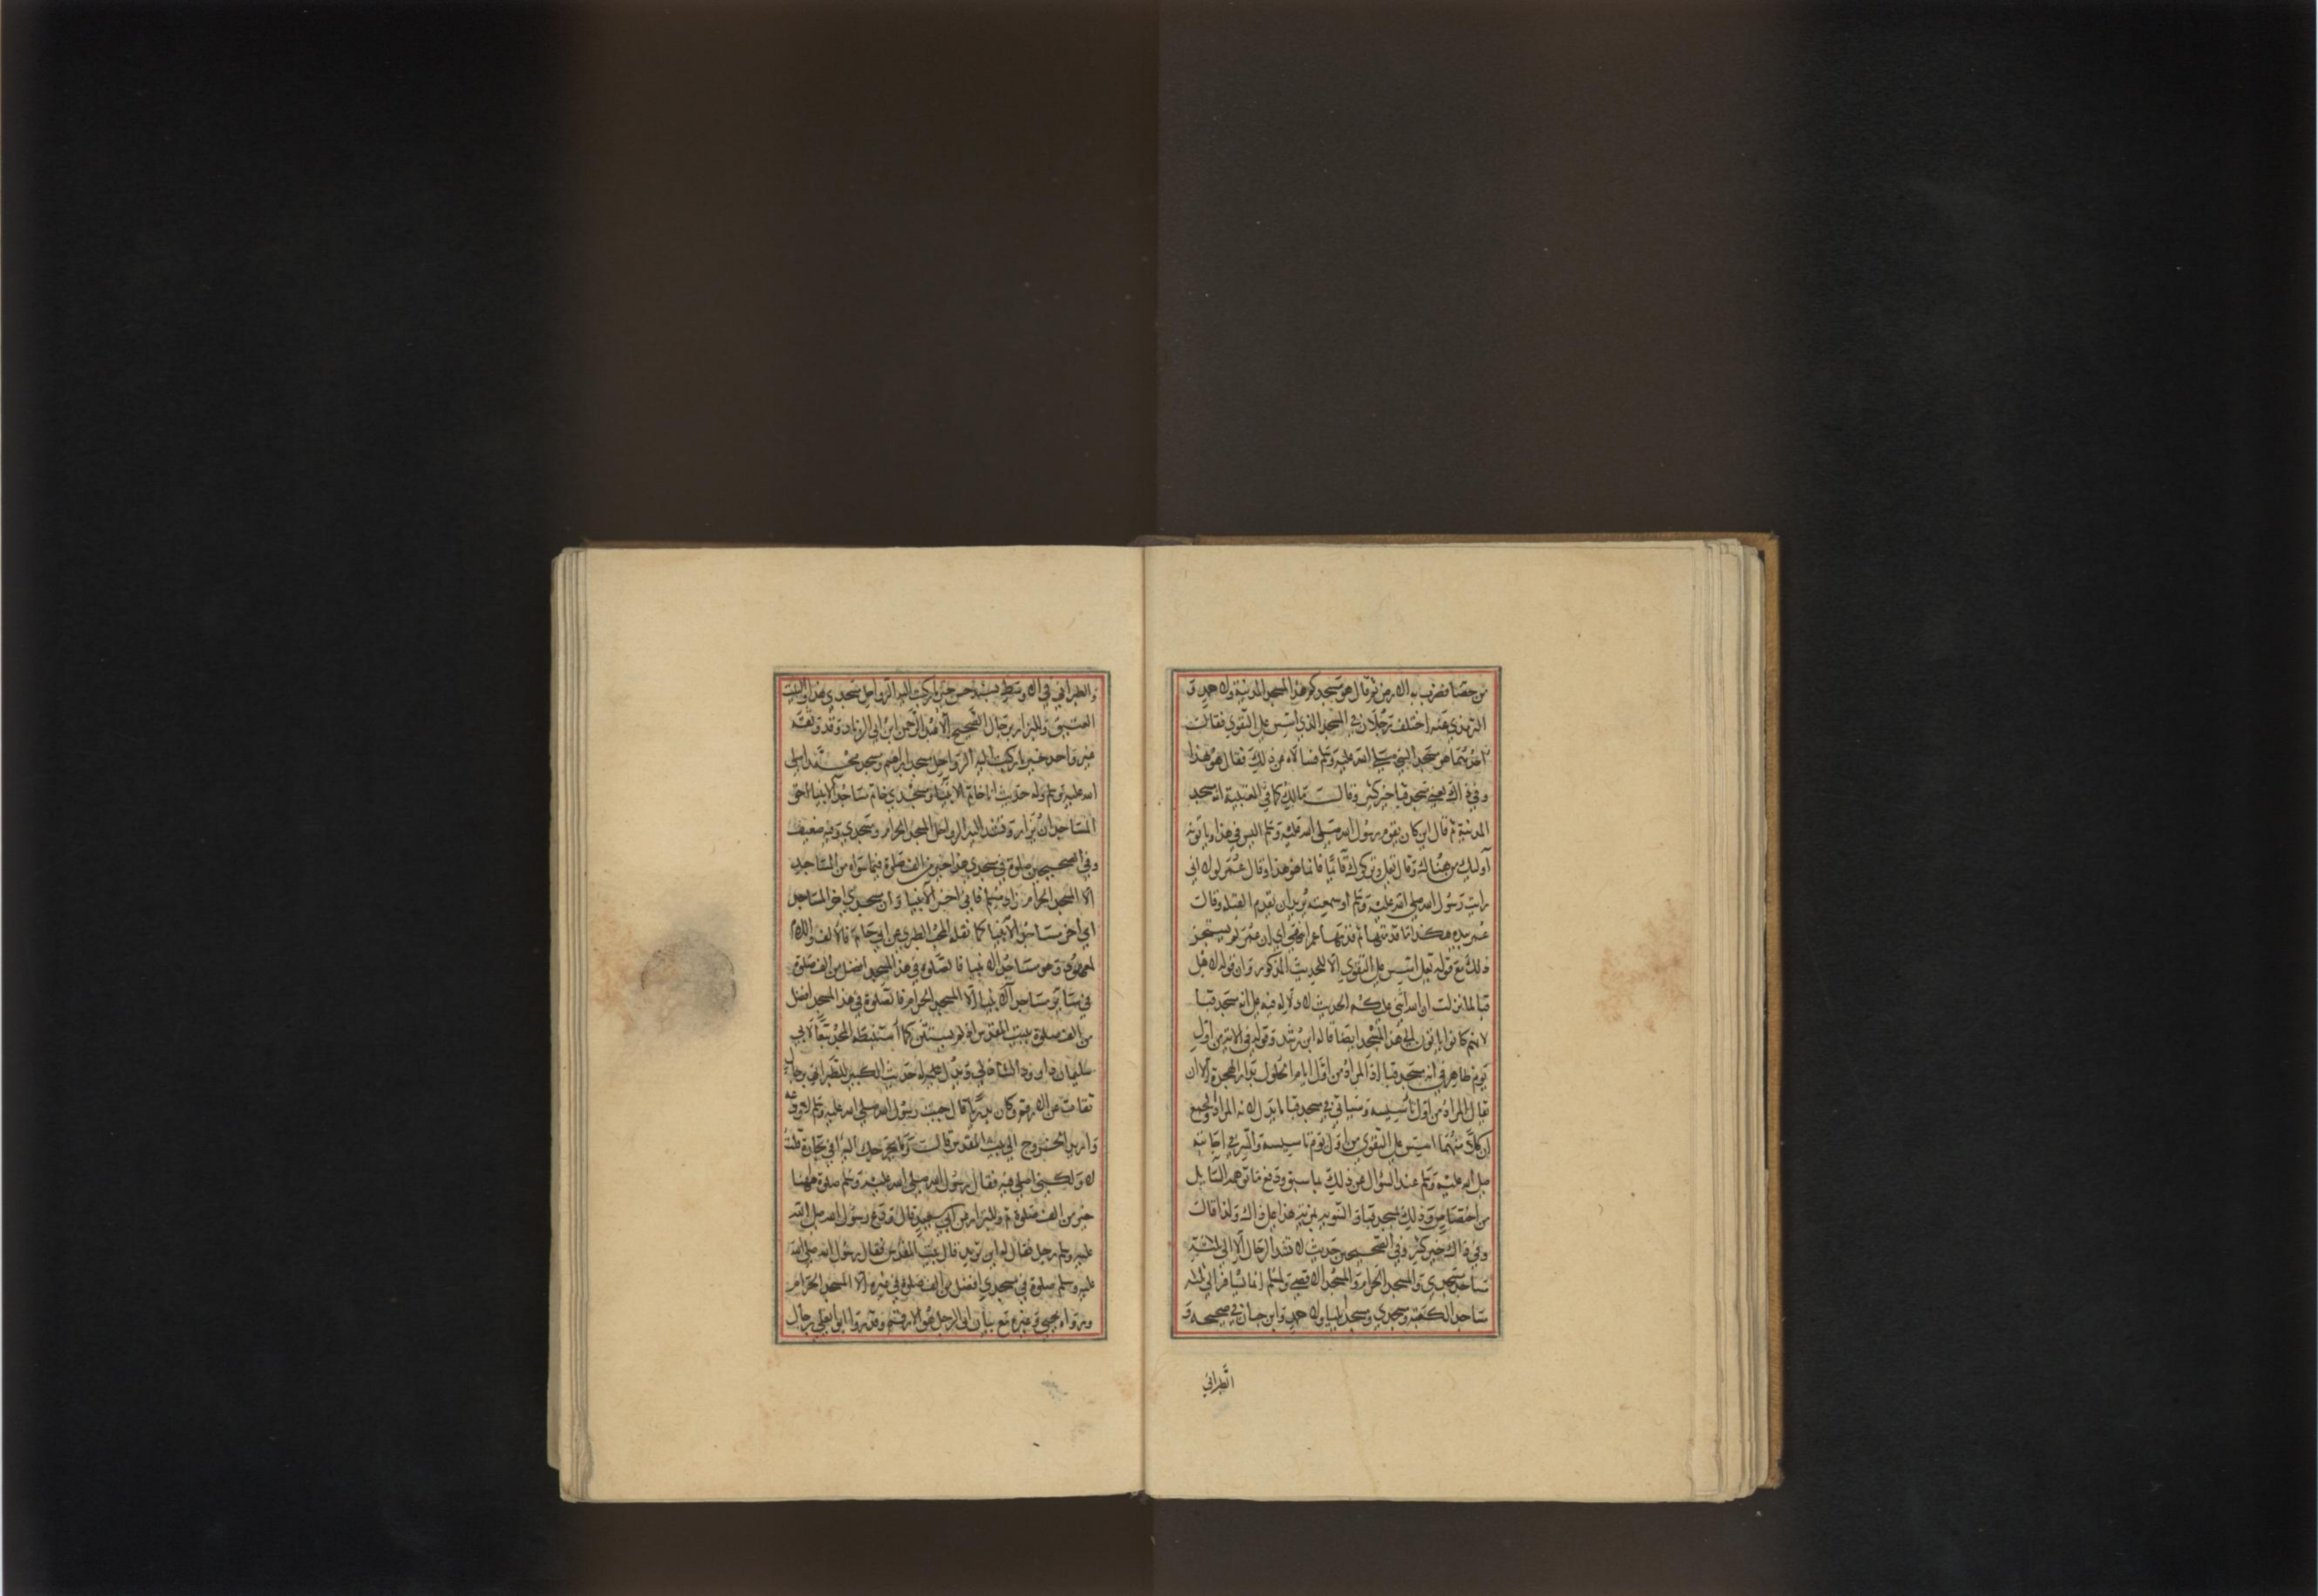 من حصباء فضرب به الارض ثم قال هو مسجدكم هذا المسجد المدينة ولاحمد و
الترمذي عنه اختلف رجلان في المسجد الذي اسس على التقوى فقالت
احدهما هو مسجد النبي صلى الله عليه وسلم فسالاه عن ذلك فقال هو هذا
وفي ذاك يعني مسجد قبا خير كثير وقالت مالك كما في العتبية انه مسجد
المدينة ثم قال اين كان يقوم رسول الله صلى الله عليه وسلم اليس في هذا وياتونه
اولئك من هنالك وقال تعالى وتركوك قائما فانما هو هذا وقال عمر لولا اني
رايت رسول الله صلى الله عليه وسلم او سمعته يريد ان يقدم القبلة وقالت
عمر بيده هكذا ما قدمتها ثم قدمها عمر انتهى اي ان عمر لم يستجز
ذلك مع قوله تعالى اسس على التقوى الا للحديث المذكور وان قوله لاهل
قبا لما نزلت ان الله اثنى عليكم الحديث لا دلالة فيه على انه مسجد قبا
لانهم كانوا ياتون الى هذا المسجد ايضا قاله ابن رشد وقوله في الاية من اول
يوم ظاهر في انه مسجد قبا اذ المراد من اول ايام الحلول بدار الهجرة الا ان
يقال المراد من اول تاسيسه وسياتي في مسجد قبا ما يدل انه المراد والجمع
ان كلا منهما اسس على التقوى من اول يوم تاسيسه والسر في اجابته
صلى الله عليه وسلم عند السؤال عن ذلك بما سبق ودفع ما توهمه السايل
من اختصاص ذلك بمسجد قبا والتنويه بمزية هذا على ذاك ولذا قالت
وفي ذاك خير كثير وفي الصحيحين حديث لا تشد الرحال الا الى ثلاثة
مساجد مسجدي والمسجد الحرام والمسجد الاقصى ولمسلم انما يسافر الى ثلثه
مساجد الكعبة ومسجدي ومسجد ايليا ولاحمد وابن حبان في صحيحه و
الطبراني
والطبراني في الاوسط بسند حسن خير ما ركبت اليه الرواحل مسجدي هذا والبيت
العتيق وللبزار برجال الصحيح الا عبد الرحمن ابن ابي الزناد وقد وثقه
غير واحد خير ما ركبت اليه الرواحل مسجد ابراهيم ومسجد محمد صلى
الله عليه وسلم وله حديث انا خاتم الانبياء ومسجدي خاتم مساجد الانبياء احق
المساجد ان يزار وتشد اليه الرواحل المسجد الحرام ومسجدي وفيه ضعيف
وفي الصحيحين صلوة في مسجدي هذا خير من الف صلوة فيما سواه من المساجد
الا المسجد الحرام زاد مسلم فاني اخر الانبياء وان مسجدي اخر المساجد
اي اخر مساجد الانبياء كما نقله المحب الطبري عن ابي حاتم فالالف واللام
لمعهود وهو مساجد الانبياء فالصلوة في هذا المسجد افضل من الف صلوة
في ساير مساجد الانبياء الا المسجد الحرام فالصلوة في هذا المسجد افضل
من الف صلوة ببيت المقدس اذ لم يستثن كما استنبطه المجد تبعا لابي
سليمان داود الشاذلي ويدل عليه حديث الكبير للطبراني برجال
ثقات عن الارقم وكان بدريا قال جيت رسول الله صلى الله عليه وسلم لاودعه
وارید الخروج الى بيت المقدس قالت وما يخرجك اليه افي تجارة قلت
لا ولكني اصلي فيه فقال رسول الله صلى الله عليه وسلم صلوة ههنا
خير من الف صلوة ثم وللبزار عن ابي سعيد قال ودع رسول الله صلى الله
عليه وسلم رجل فقال له اين تريد قال بيت المقدس فقال رسول الله صلى الله
عليه وسلم صلوة في مسجدي افضل من الف صلوة في غيره الا المسجد الحرام
ورواه يحيى وغيره مع بيان ان الرجل هو الارقم وقد روا ابو يعلى برجال